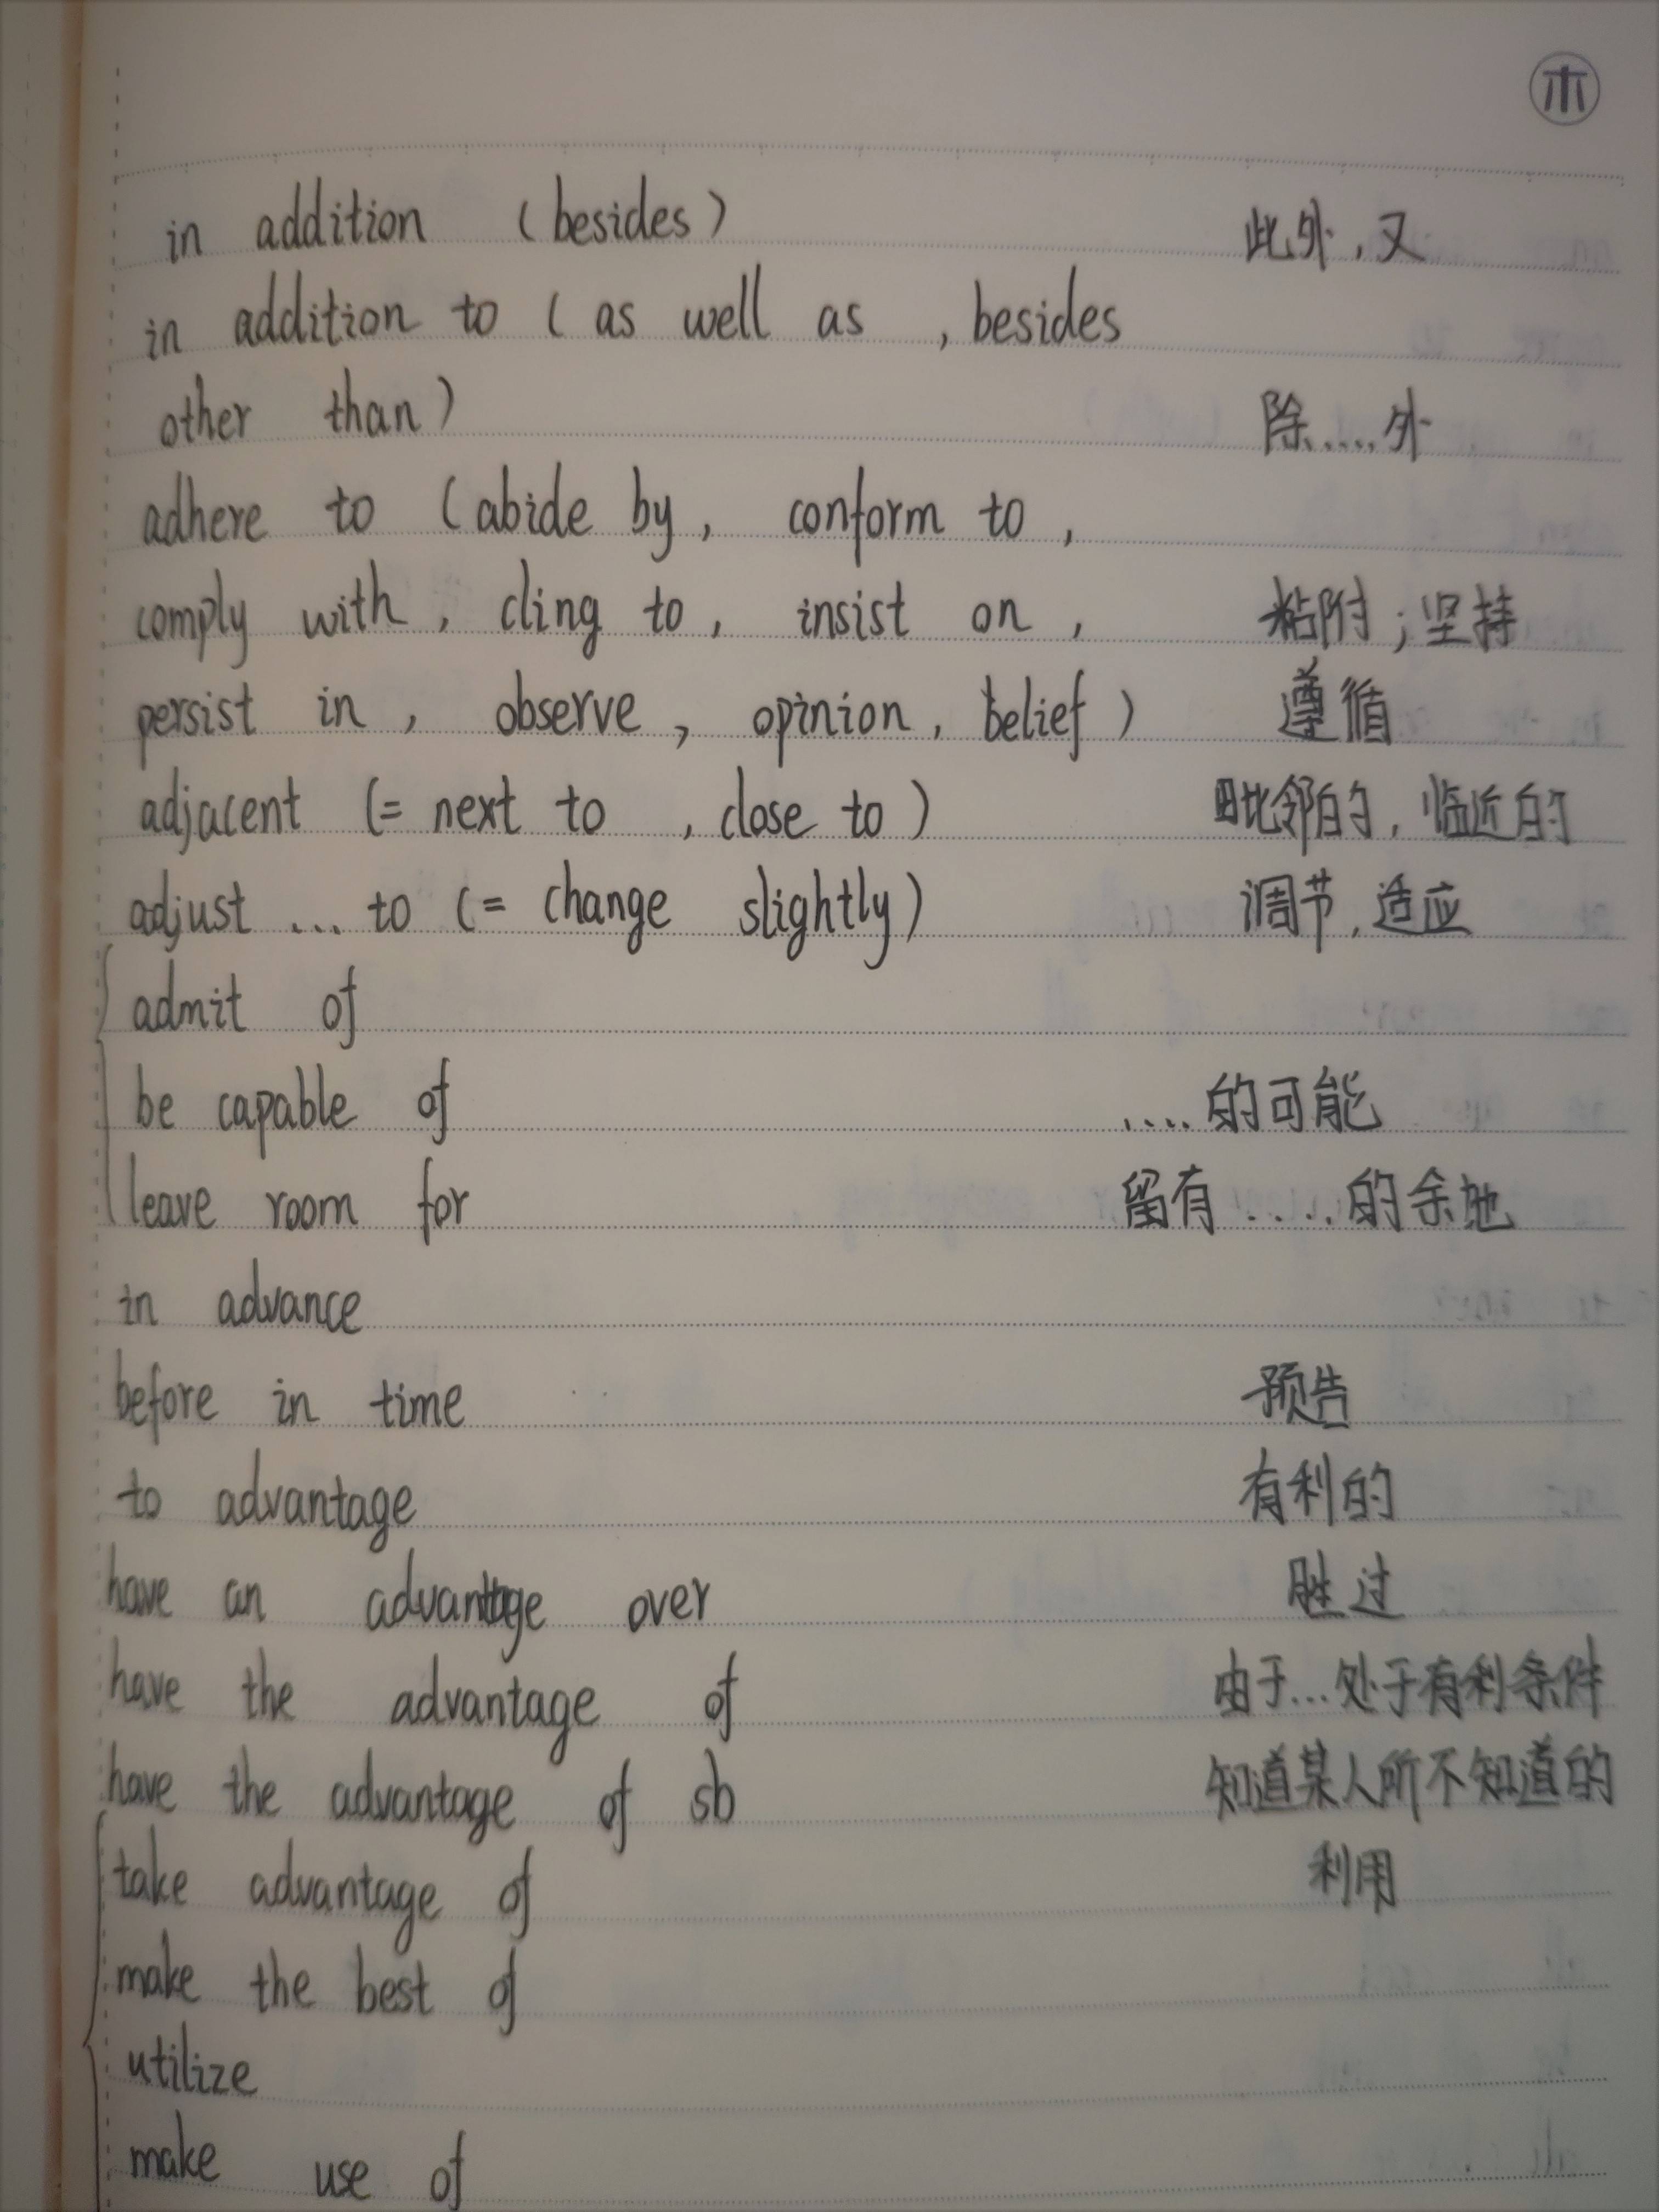 in addition (besides) 此外,又
in addition to (as well as , besides
other than) 除.....外
adhere to (abide by, conform to,
comply with, cling to, insist on, 粘附;坚持
persist in, observe, opinion, belief) 遵循
adjacent (= next to , close to) 毗邻的,临近的
adjust ... to (= change slightly) 调节,适应
admit of
be capable of ....的可能
leave room for 留有.....的余地
in advance
before in time 预告
to advantage 有利的
have an advantage over 胜过
have the advantage of 由于...处于有利条件
have the advantage of sb 知道某人所不知道的
take advantage of 利用
make the best of
utilize
make use of